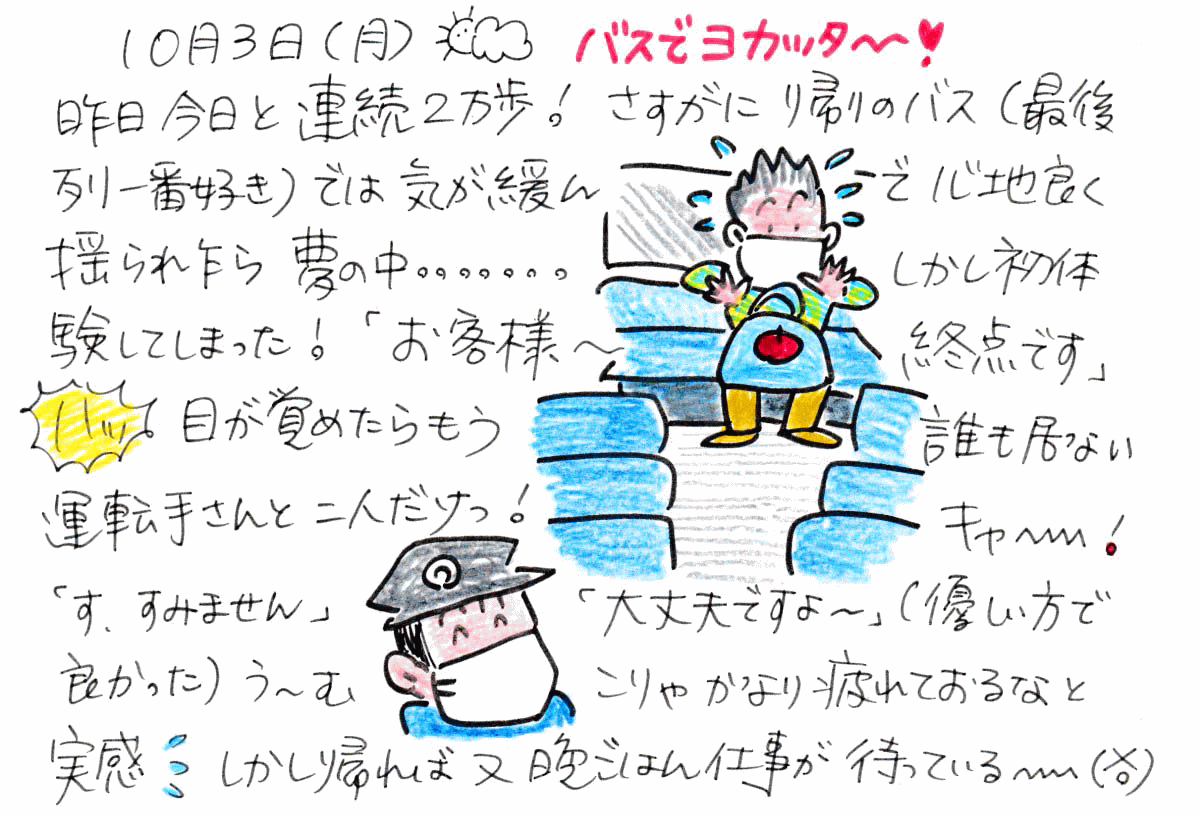 10月3日(月) バスでヨカッタ〜〜!
昨日今日と連続2万歩! さすがに帰りのバス(最後
列一番好き)では気が緩んで心地良く
揺られ乍ら夢の中。。。。。。。しかし初体
験してしまった!「お客様〜終点です」
ハッ。目が覚めたらもう誰も居ない
運転手さんと二人だけっ! キャ〜〜!
「す、すみません」「大丈夫ですよ〜」(優しい方で
良かった)う〜む こりゃかなり疲れておるなと
実感 しかし帰れば又晩ごはん仕事が待っている〜〜(笑)